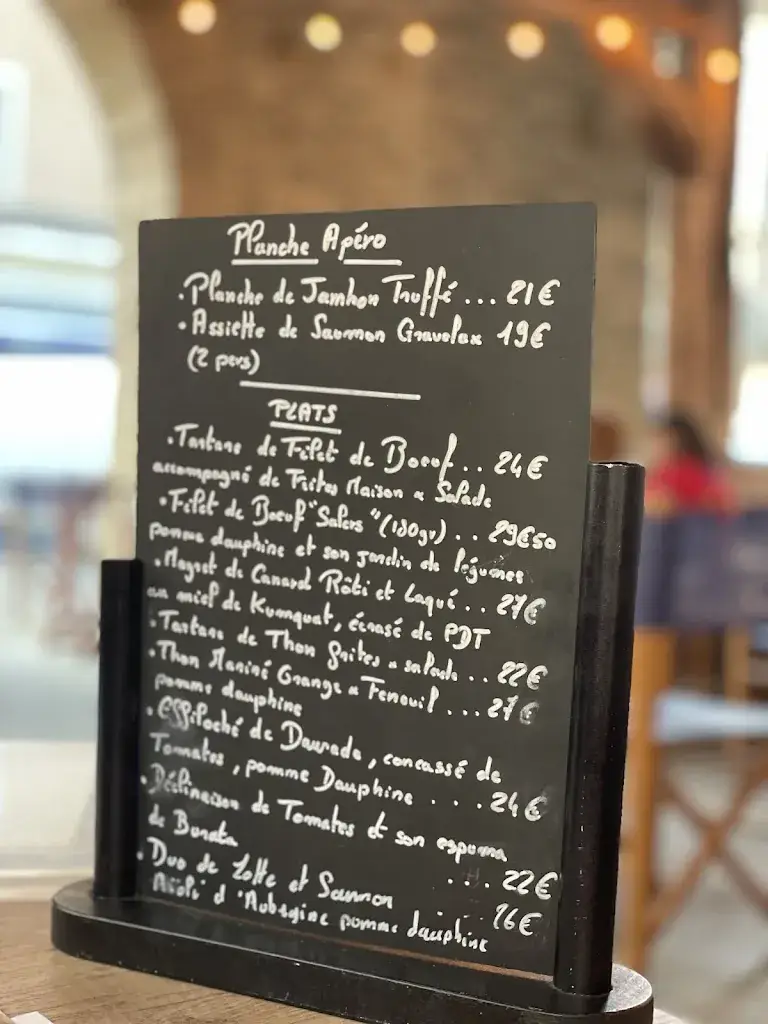 Planche Apéro
• Planche de Jambon Truffé ... 21€
• Assiette de Saumon Gravelax 19€
(2 pers)
PLATS
• Tartare de Filet de Boeuf .. 24€
accompagné de Frites Maison & Salade
• Filet de Boeuf "Salers" (180gr) .. 29€50
pomme dauphine et son jardin de légumes
• Magret de Canard Rôti et Laqué .. 27€
au miel de Kumquat, écrasé de PDT
• Tartare de Thon frites & salade .. 22€
• Thon Mariné Orange & Fenouil ... 27€
pomme dauphine
• Effiloché de Daurade, concassé de
Tomates, pomme Dauphine ... 24€
• Déclinaison de Tomates et son espuma
de Burrata ... 22€
• Duo de Lotte et Saumon .. 26€
d'Aubergine pomme dauphine